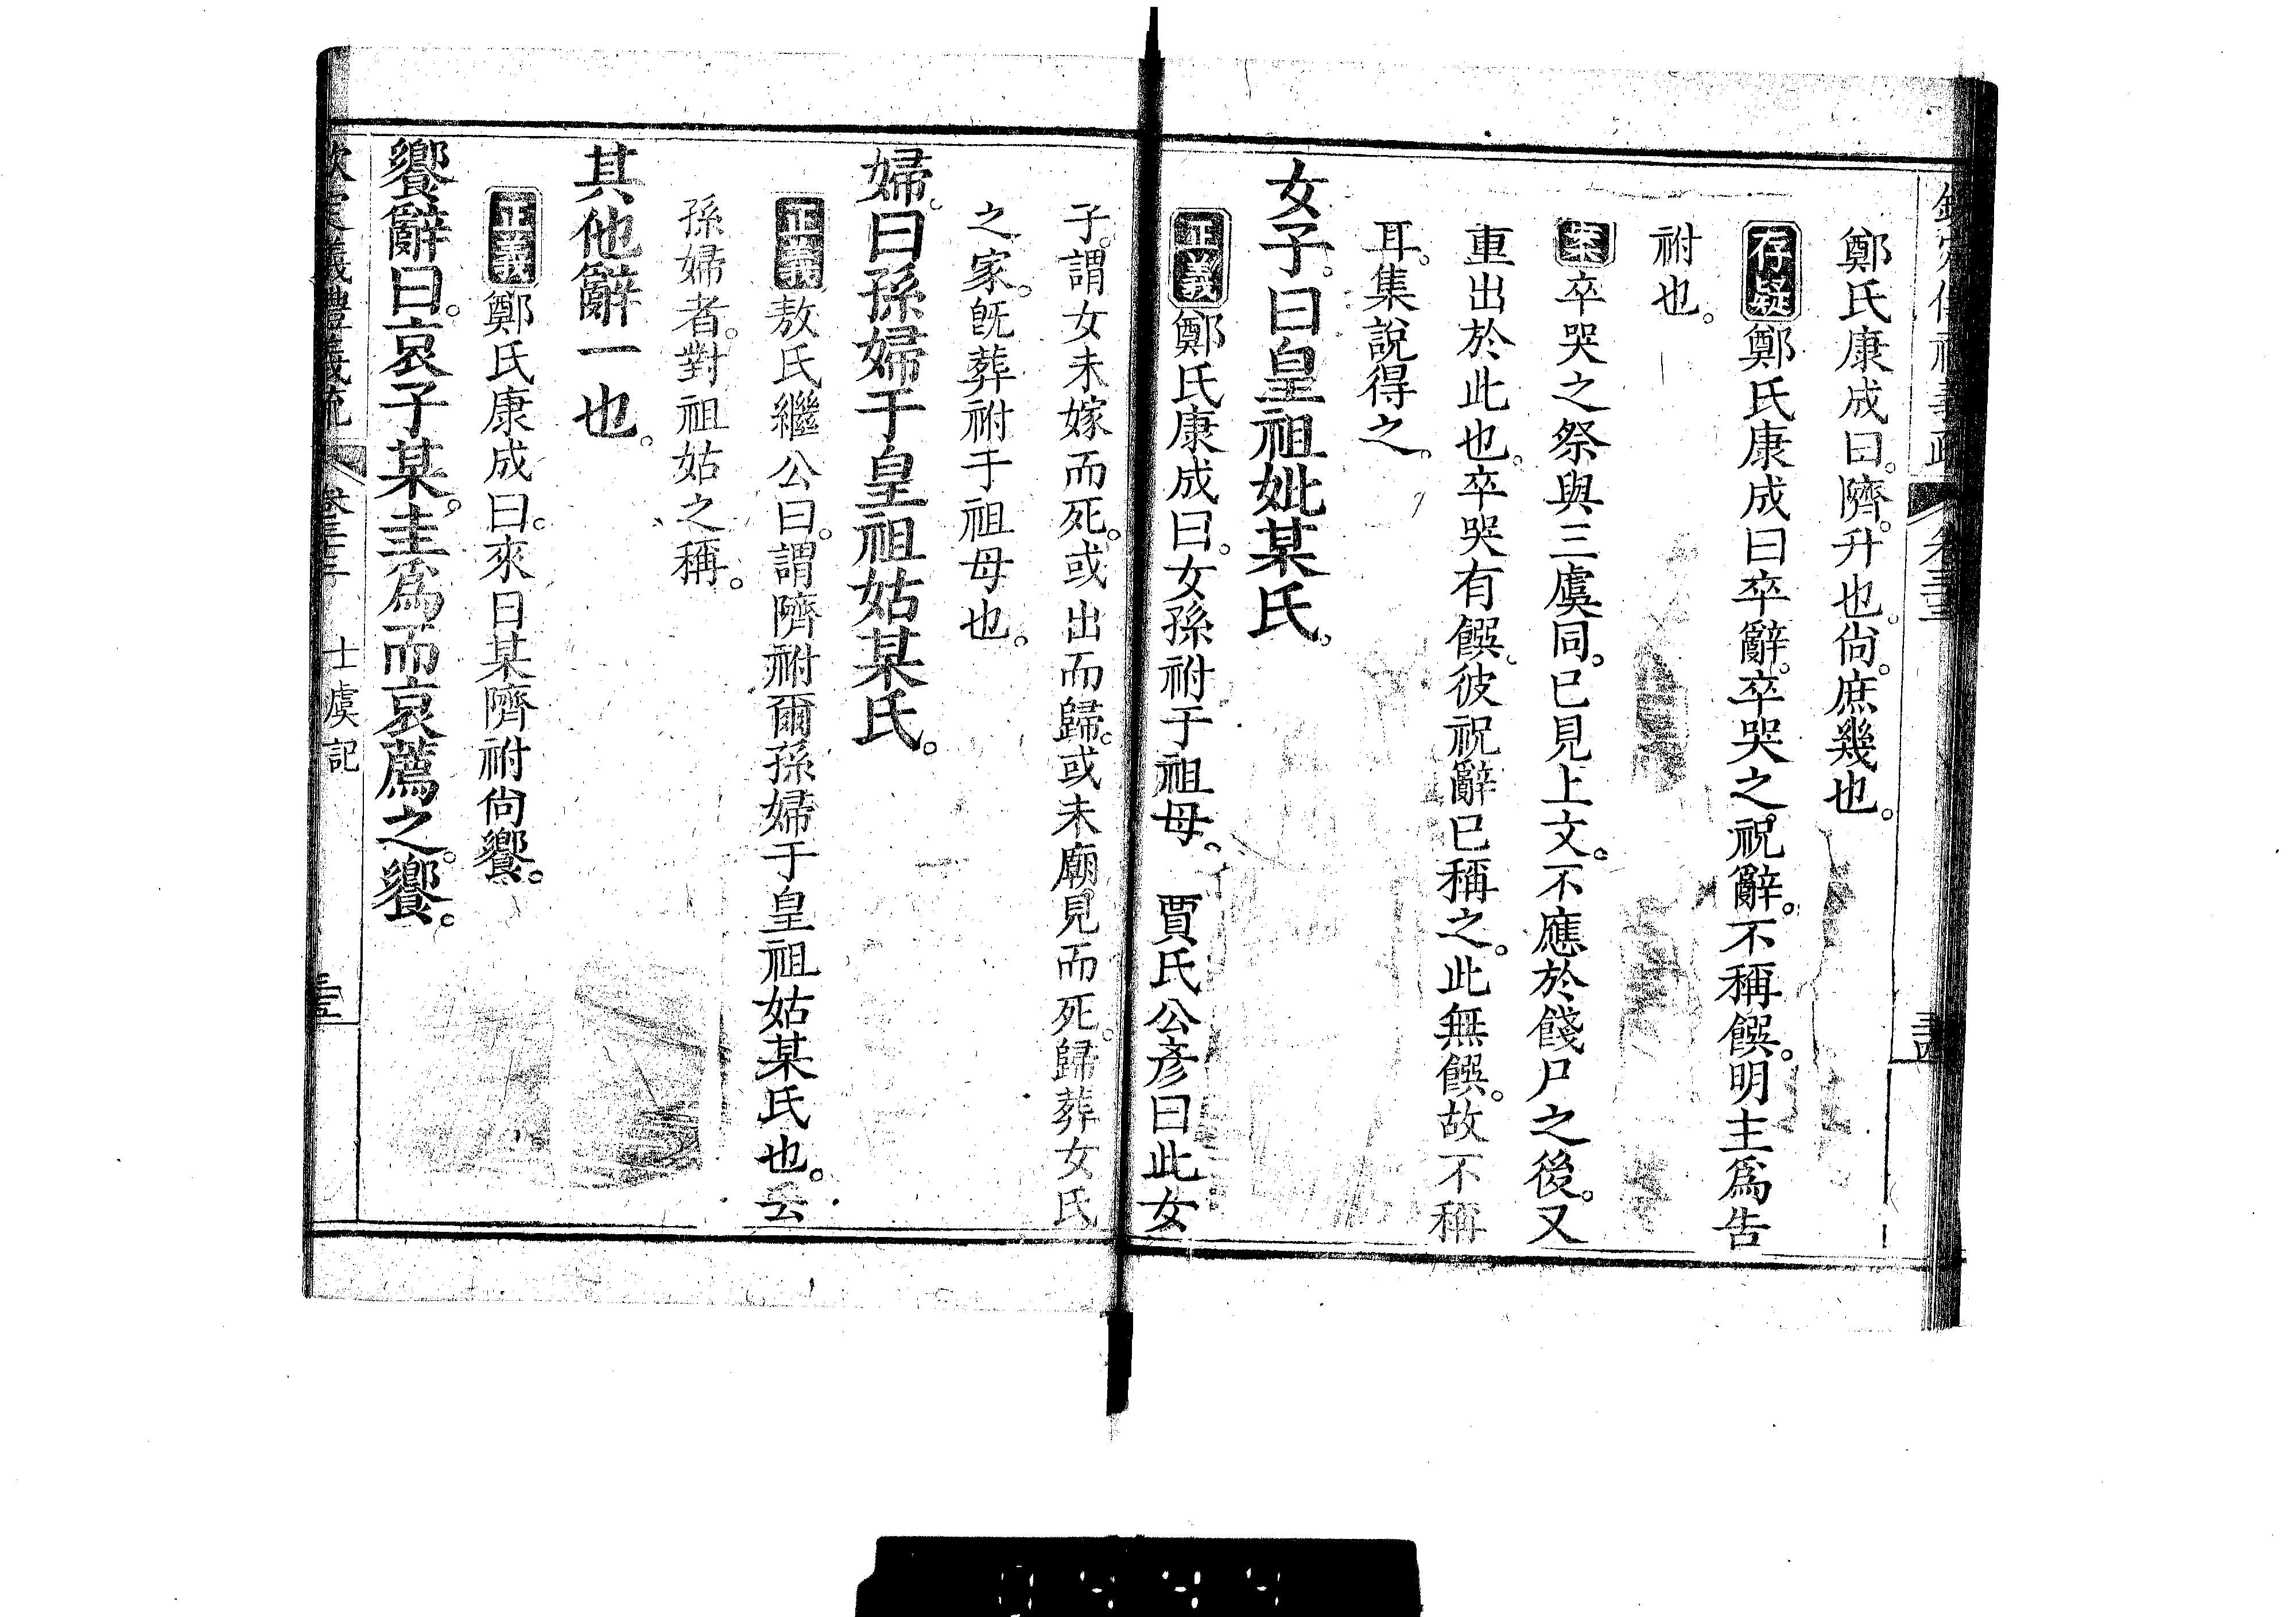 鄭氏康成曰。隮。升也。尙。庶幾也。
存疑鄭氏康成曰卒辭。卒哭之祝辭。不稱饌。明主爲告
祔也。
案卒哭之祭與三虞同。已見上文。不應於餞尸之後。又
重出於此也。卒哭有饌。彼祝辭已稱之。此無饌。故不稱
耳。集說得之。
女子。曰皇祖妣某氏。
正義鄭氏康成曰。女孫祔于祖母。 賈氏公彥曰此女
子。謂女未嫁而死。或出而歸。或未廟見而死。歸葬女氏
之家。旣葬祔于祖母也。
婦。曰孫婦于皇祖姑某氏。
正義敖氏繼公曰。謂隮祔爾孫婦于皇祖姑某氏也。云
孫婦者。對祖姑之稱。
其他辭一也。
正義鄭氏康成曰。來日某隮祔尙饗。
饗辭曰。哀子某。圭爲而哀薦之。饗。
義禮義疏 士虞記